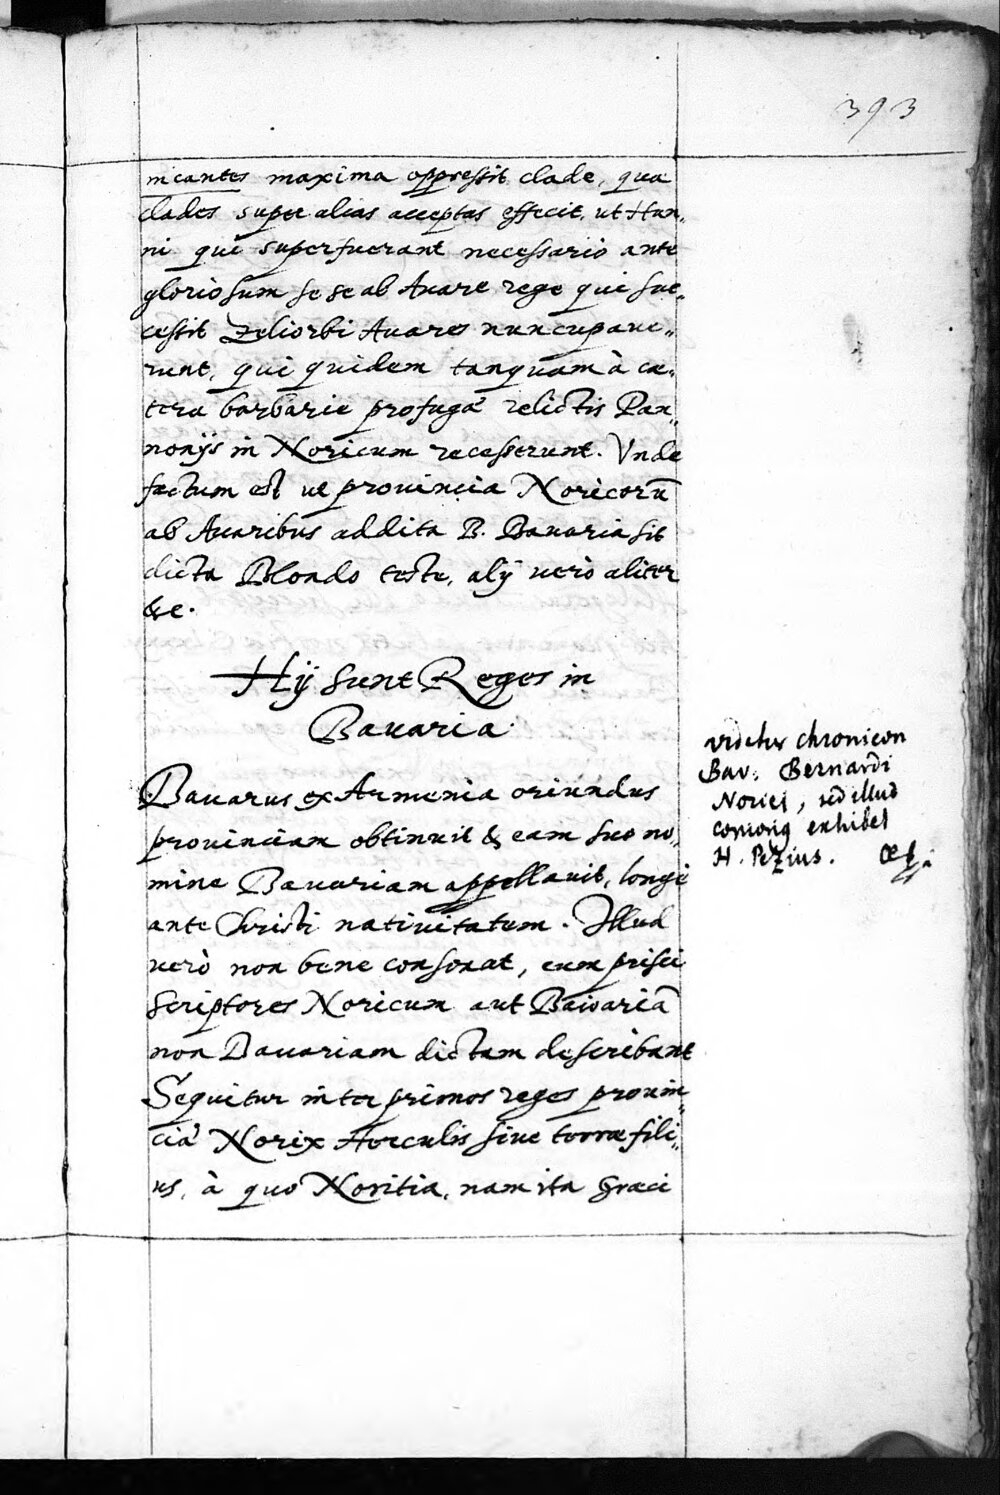 393
nicantes maxima oppressit clade, quæ
clades super alias acceptas effecit, ut Hun„
ni qui superfuerant necessario ante
gloriosum se se ab Auare rege qui suc„
cessit Zeliorbi Auares nuncupaue„
runt, qui quidem tanquam à cæ„
tera barbarie profuga relictis Pan„
nonijs in Noricum recesserunt. Vnde
factum est ut prouincia Noricorū
ab Auaribus addita B. Bauaria sit
dicta Blondo teste, alÿ uerò aliter
&c.
Hÿ sunt Reges in
Bauaria.
Bauarus ex Armenia oriundus
prouinciam obtinuit & eam suo no„
mine Bauariam appellauit, longè
ante Christi natiuitatem. Illud
uerò non bene consonat, cum prisci
scriptores Noricum aut Baioariā
non Bauariam dictam describant
Sequitur inter primos reges prouin„
ciæ Norix Herculis siue terræ fili„
us, à quo Noritia, nam ita Græci
videtur chronicon
Bav: Bernardi
Norici, sed illud
exhibet
H. Pezius.